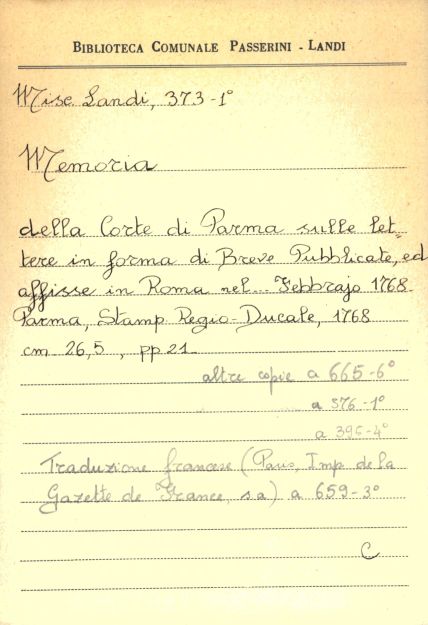 BIBLIOTECA COMUNALE PASSERINI - LANDI
Misc Landi, 373-1°
Memoria
della Corte di Parma sulle let=
tere in forma di Breve Pubblicate, ed
affisse in Roma nel... Febbrajo 1768
Parma, Stamp Regio-Ducale, 1768
cm 26,5, pp 21
altre copie a 665-6°
a 376-1°
a 395-4°
Traduzione francese (Paris, Imp de la
Gazette de France, s.a) a 659-3°
C